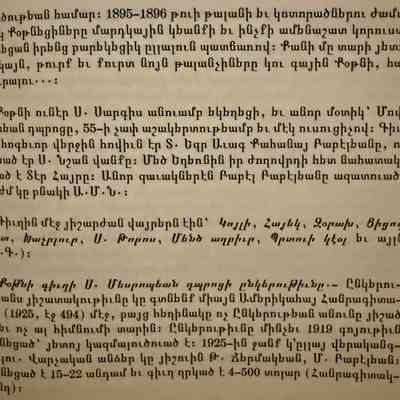 ծութեան համար։ 1895-1896 թուի թալանի եւ կոտորածներու ժամա
կ Քօթնեցիները մարդկային կեանքի եւ ինչքի ամենաշատ կորուստ
եցան իրենց բարեկեցիկ ըլլալուն պատճառով։ Քանի մը տարի յետո
կայն, թուրք եւ քուրտ նոյն թալանչիները կու գային Քօթնի, հա
րալու...։
Քօթնի ունէր Ս. Սարգիս անուամբ եկեղեցի, եւ անոր մօտիկ՝ Մով
եան դպրոցը, 55-ի չափ աշակերտութեամբ եւ մէկ ուսուցիչով։ Գիւ
հոգեւոր վերջին հովիւն էր Տ. Եզր Աւագ Քահանայ Բաբէլեանը, ո
ած էր Ս. Նշան վանքը։ Մեծ Եղեռնին իր ժողովրդի հետ նահատակ
է Տէր Հայրը։ Անոր զաւակներէն Բաբէլ Բաբէլեանը ազատուած
ժմ կը բնակի Ա.Մ.Ն.։
Գիւղին մէջ յիշարժան վայրերն էին՝ Կոյլի, Հայեկ, Զօրախ, Ցիցո
տ, Խաչրլուր, Ս. Թորոս, Մենծ աղբիւր, Պատուի կէօլ եւ այլն
.Գ.)։
Քօթնի գիւղի Ս. Մեսրոպեան դպրոցի ընկերութիւնը.- Ընկերու-
անս յիշատակութիւնը կը գտնենք միայն Ամերիկահայ Հանրագիտա-
(1925, էջ 494) մէջ, բայց հեղինակը ոչ Ընկերութեան անունը յիշած
եւ ոչ ալ հիմնումի տարին։ Ընկերութիւնը մինչեւ 1919 գոյութիւն
նեցած՝ յետոյ կազմալուծուած է։ 1925-ին ջանք կ՚ըլլայ վերականգ-
լու. Վարչական անձեր կը յիշուին Թ. Ճերմակեան, Մ. Բաբէլեան։
նեցած է 15-22 անդամ եւ գիւղ ղրկած է 4-500 տոլար (Հանրագիտակ-
նդ)։